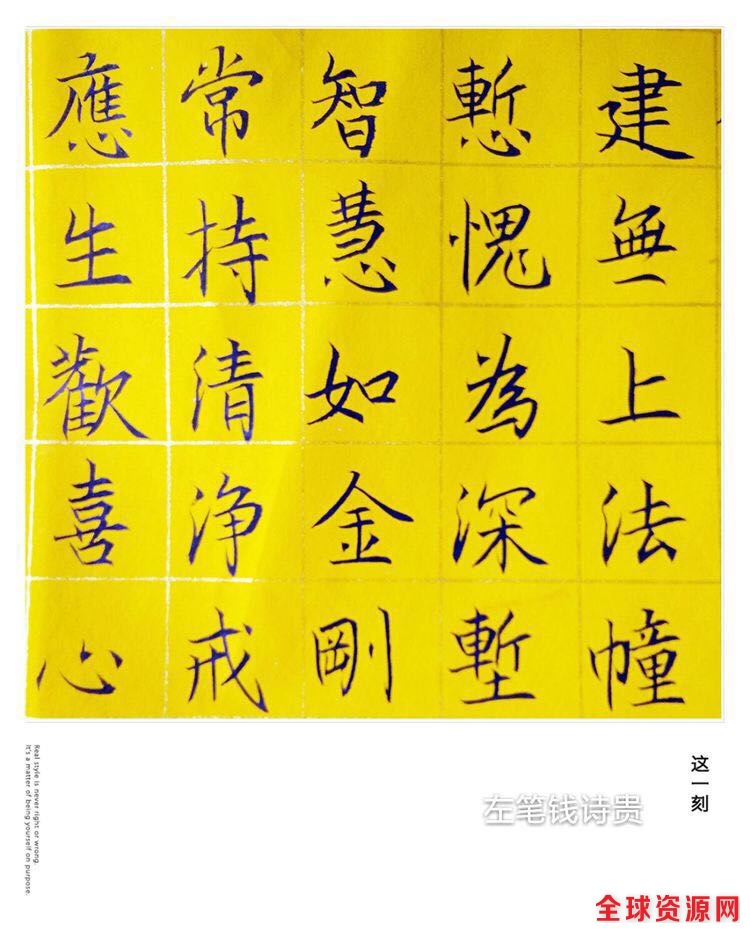 建無上法幢
慙愧為深塹
智慧如金剛
常持清净戒
應生歡喜心
这一刻
左笔钱诗贵
Real style is never right or wrong.
It's a matter of being yourself on purpose.
全球资源网